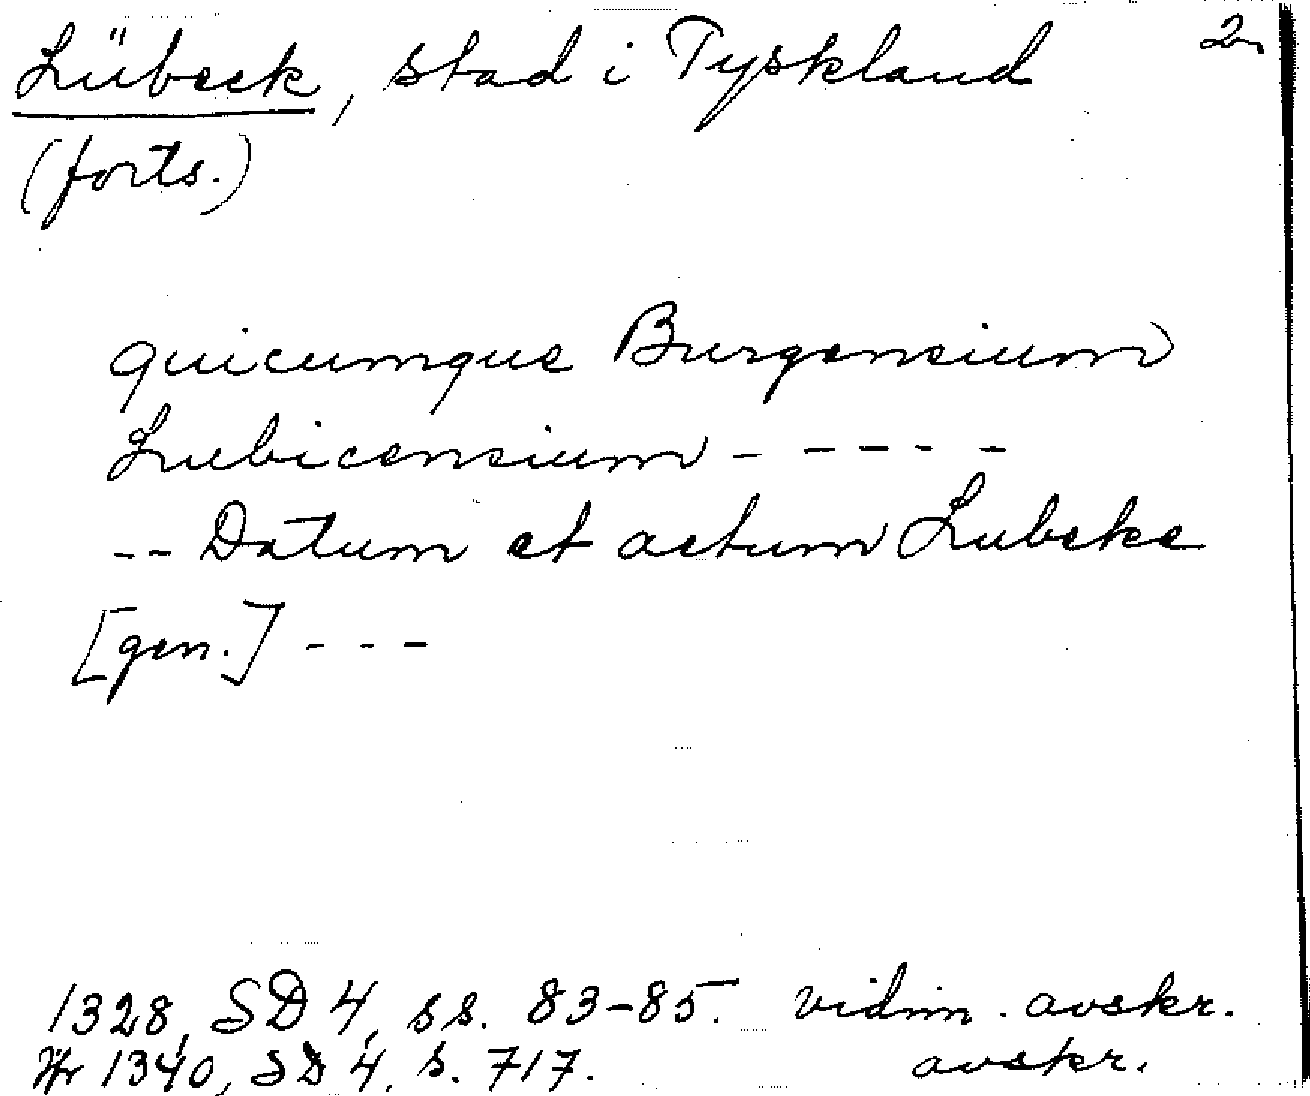 Lübeck, stad i Tyskland 2.
(forts.)
quicumque Burgensium
Lubicensium - - - - -
-- Datum et actum Lubeke
[gen.] - - -
1328, SD 4, ss. 83-85. vidim. avskr.
1340, SD 4, s. 717. avskr.